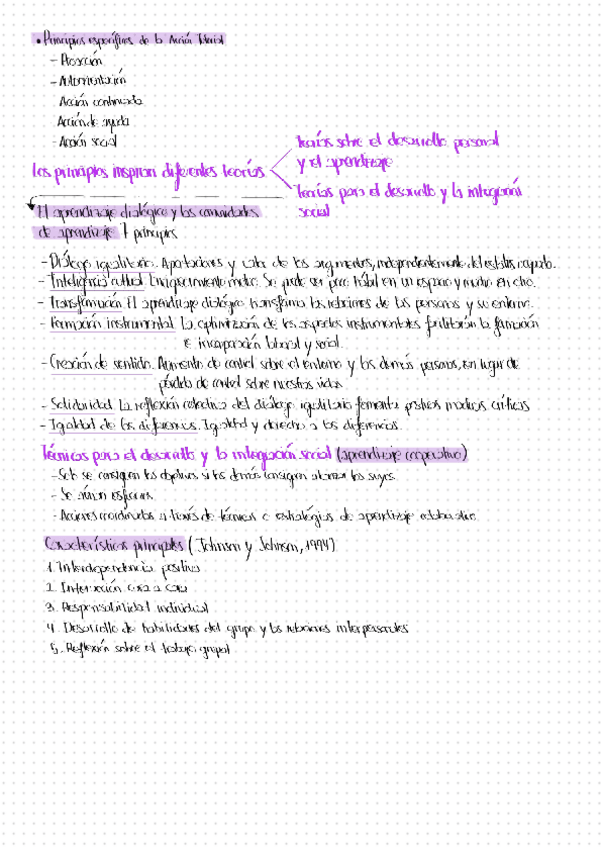 • Principios específicos de la Acción Tutorial
- Prevención
- Autoorientación
Acción continuada
Acción de ayuda
- Acción social
Los principios inspiran diferentes teorías
teorías sobre el desarrollo personal
y el aprendizaje
teorías para el desarrollo y la integración
social
El aprendizaje dialógico y las comunidades
de aprendizaje 7 principios
- Diálogo igualitario. Aportaciones y valor de los argumentos, independientemente del estatus ocupado.
- Inteligencia cultural. Enriquecimiento mutuo. Se puede ser poco hábil en un espacio y mucho en otro.
- Transformación. El aprendizaje dialógico transforma las relaciones de las personas y su entorno.
- Formación instrumental. La optimización de los aspectos instrumentales facilitarán la formación
e incorporación laboral y social.
- Creación de sentido. Aumento de control sobre el entorno y las demás personas, en lugar de
pérdida de control sobre nuestras vidas
- Solidaridad. La reflexión colectiva del diálogo igualitario fomenta críticas
- Igualdad de las diferencias. Igualdad y derecho a las diferencias.
Técnicas para el desarrollo y la integración social (aprendizaje cooperativo)
- Solo se consiguen los objetivos si los demás consiguen alcanzar los suyos.
- Se aúnan esfuerzos
- Acciones coordinadas a través de técnicas o estrategias de aprendizaje colaborativo
Características principales (Johnson y Johnson, 1994)
1. Interdependencia positiva
2. Interacción cara a cara
3. Responsabilidad individual
4. Desarrollo de habilidades del grupo y las relaciones interpersonales
5. Reflexión sobre el trabajo grupal